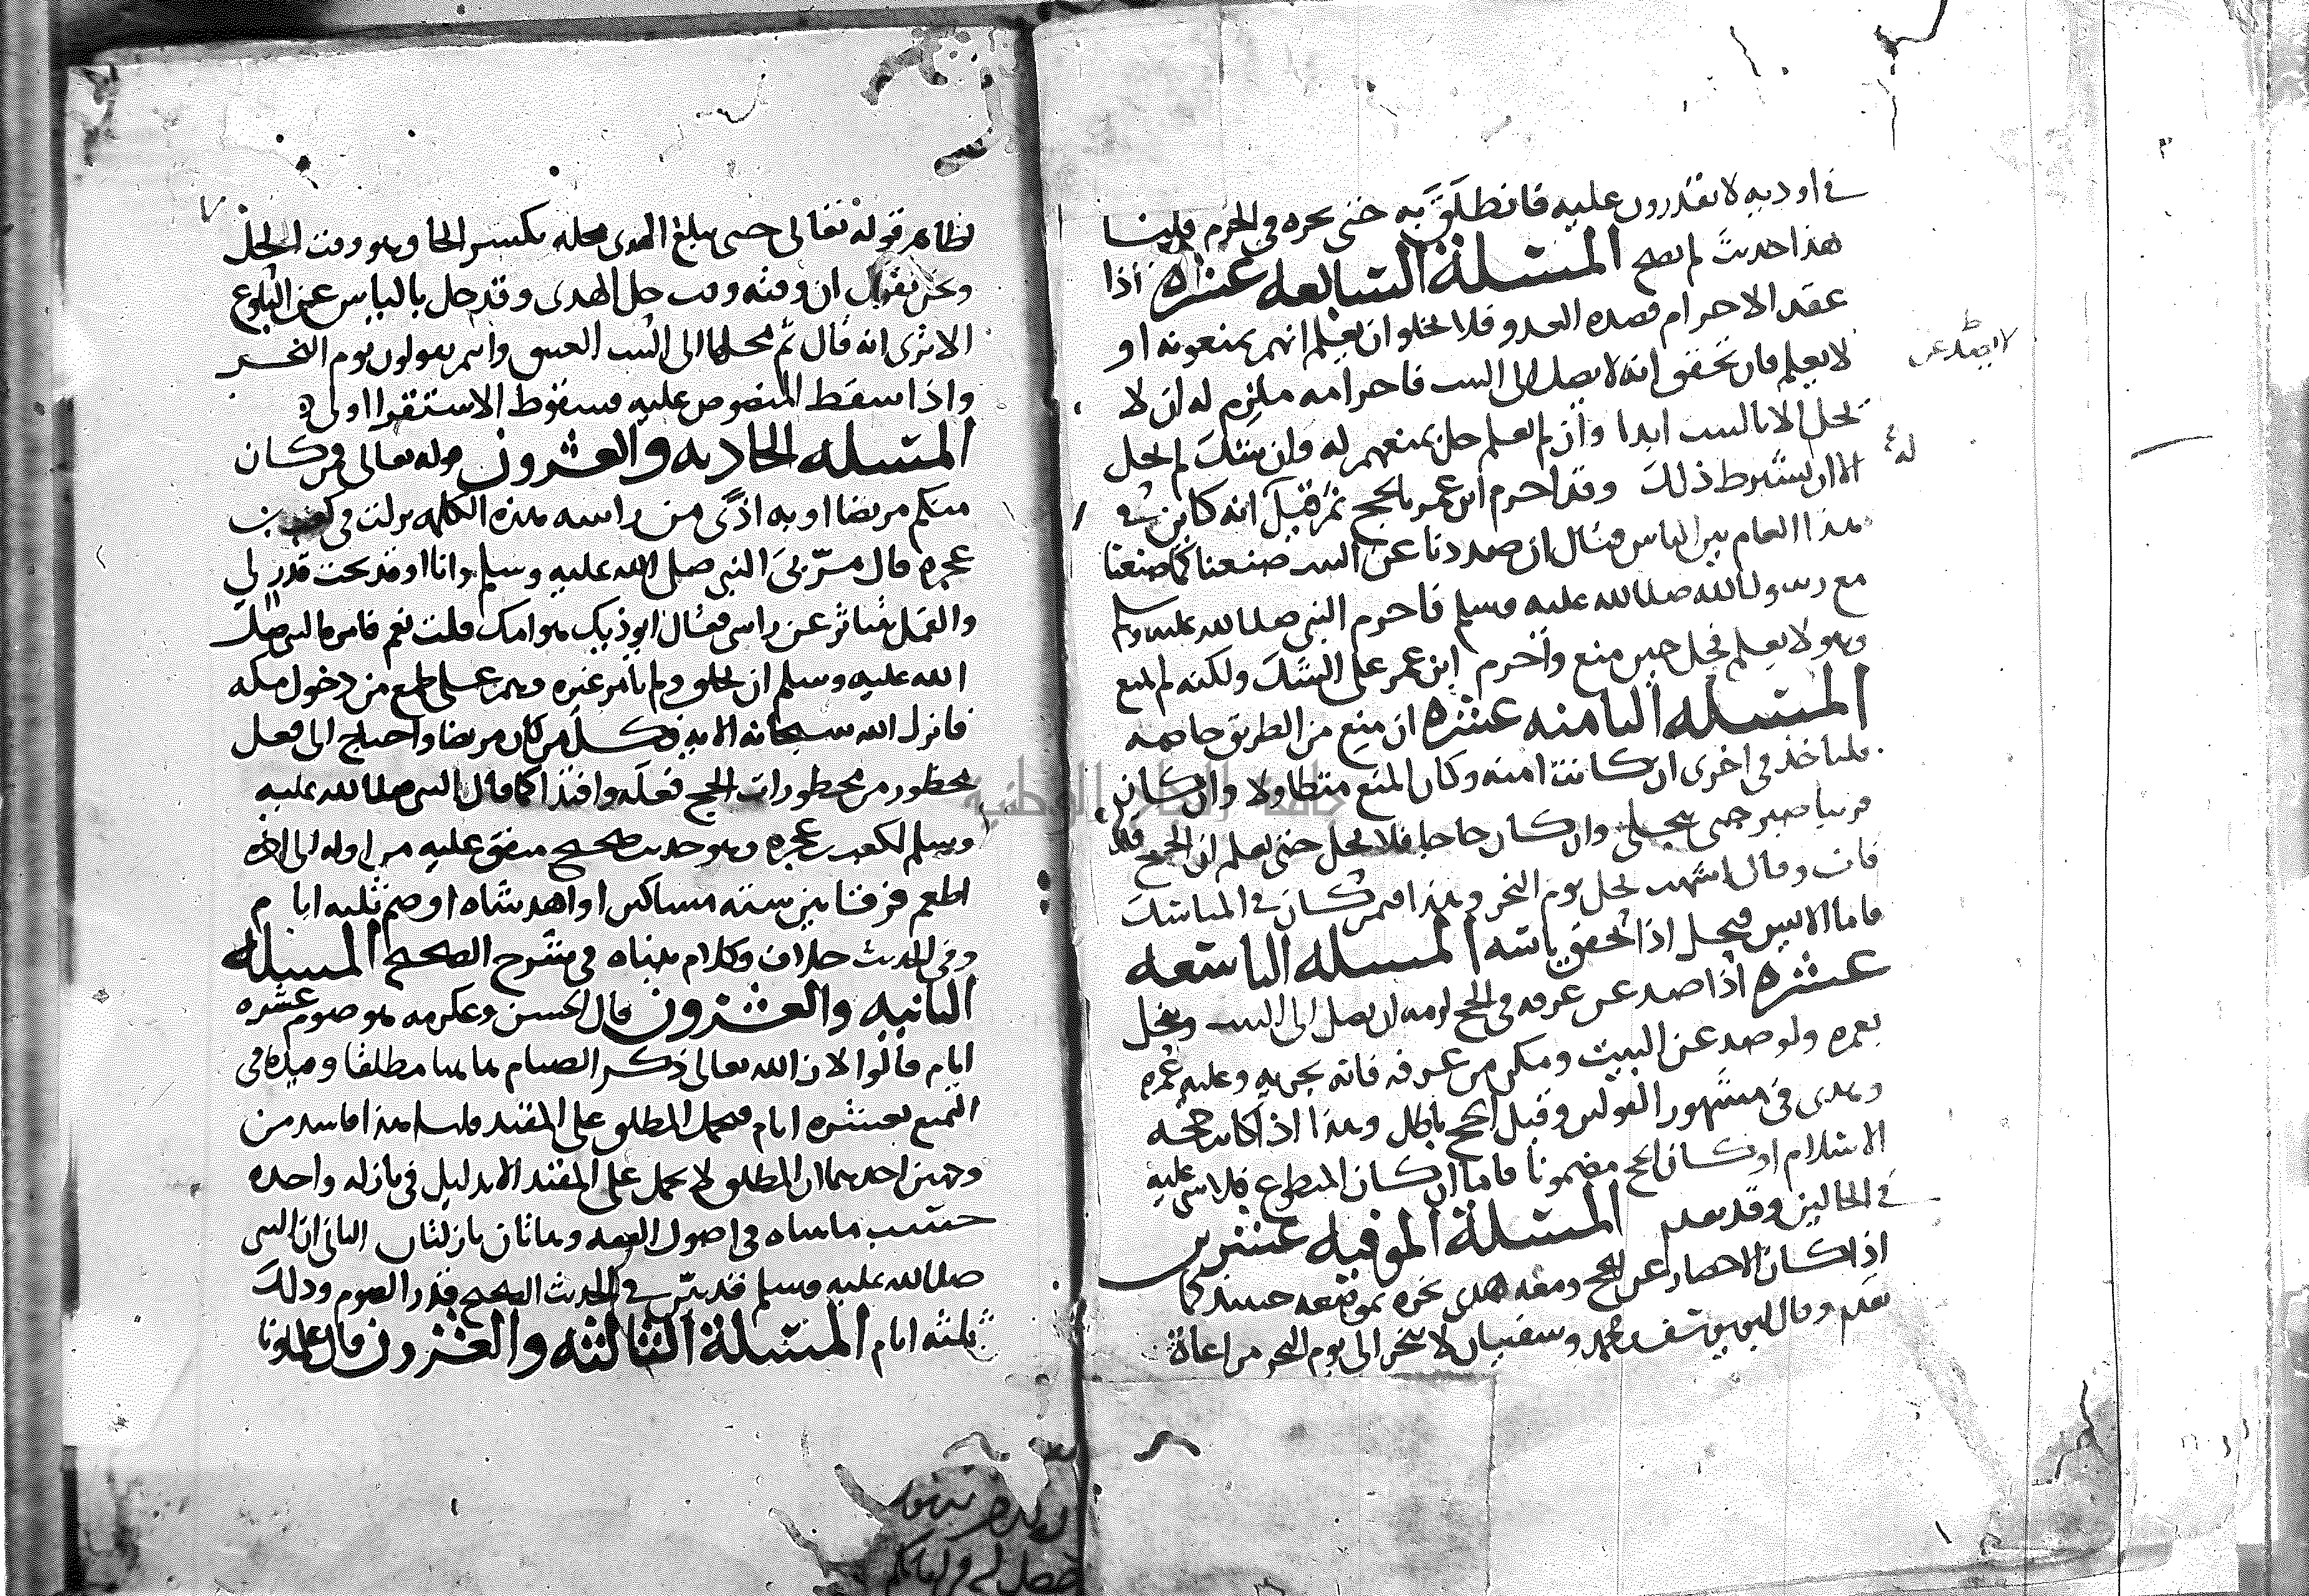 في اوديه لا يقدرون عليه فانطلق به حتى نحره في الحرم قلنا
هذا حديث لم يصح المسئلة السابعه عشره اذا
عقد الاحرام قصده العدو فلا يخلو ان يعلم انهم يمنعونه او
لا يعلم فان تحقق انه لا يصل الى البيت فاحرامه ملزم له ان لا
يحل الا بالبيت ابدا وان لم يعلم حل بمنعهم له وان شك لم يحل
الا ان يشترط ذلك وقد احرم ابن عمر بالحج ثم قيل انه كاين في
هذا العام بين الناس فقال ان صددنا عن البيت صنعنا كما صنعنا
مع رسول الله صلى الله عليه وسلم فاحرم النبي صلى الله عليه وسلم
وهو لا يعلم فحل حين منع واحرم ابن عمر على الشك ولكنه لم يمنع
المسئله الثامنه عشره ان منع من الطريق خاصه
فلياخذ في اخرى ان كانت امنه وكان المنع متطاولا وان كان
قريبا صبر حتى ينجلي وان كان حاجا فلا يحل حتى يعلم ان الحج قد
فات وقال اشهب يحل يوم النحر وهذا فيمن كان في المناسك
فاما الايس فيحل اذا تحقق ياسه المسئله التاسعه
عشره اذا صد عن عرفه في الحج لزمه ان يصل الى البيت ويحل
بعمره ولو صد عن البيت ومكن من عرفه فانه يجزيه وعليه عمره
وهدي في مشهور القولين وقيل الحج باطل وهذا اذا كان حجه
الاسلام او كان الحج مضمونا فاما ان كان المتطوع فلا شي عليه
في الحالين وقد تقدم المسئلة الموفيه عشرين
اذا كان الاحصار عن الحج ومعه هدي نحره بموضعه حينئذ كما
تقدم وقال ابو يوسف ومحمد وسفيان لا ينحر الى يوم النحر مراعاة
لا يصله عن
له
ظاهر قوله تعالى حتى يبلغ الهدى محله بكسر الحا وهو وقت الحل
ونحن نقول ان وقته وقت حل الهدى وقد حل بالياس عن البلوغ
الا ترى انه قال ثم محلها الى البيت العتيق وانتم تقولون يوم النحر
واذا سقط المنصوص عليه فسقوط الاستقرا اولى
المسئله الحاديه والعشرون قوله تعالى فمن كان
منكم مريضا او به اذًى من راسه هذه الكلمه نزلت في كعب بن
عجره قال مرّ بي النبي صلى الله عليه وسلم وانا اوقد تحت قدر لي
والقمل يتناثر عن راسي فقال ايوذيك هوامك قلت نعم فامره النبي صلى
الله عليه وسلم ان يحلق ولم يامر غيره وهم على طمع من دخول مكه
فانزل الله سبحانه الايه فكل من كان مريضا واحتاج الى فعل
محظور من محظورات الحج فعله وافتدا كما قال النبي صلى الله عليه
وسلم لكعب بن عجره وهو حديث صحيح متفق عليه من اوله الى اخره
اطعم فرقا بين سته مساكين او اهد شاه او صم ثلثه ايام
وفي الحديث خلاف وكلام بيناه في شرح الصحيح المسئله
الثانيه والعشرون قال الحسن وعكرمه هو صوم عشره
ايام قالوا لان الله تعالى ذكر الصيام هاهنا مطلقا وقيده في
التمتع بعشره ايام فيحمل المطلق على المقيد قلنا هذا فاسد من
وجهين احدهما ان المطلق لا يحمل على المقيد الا بدليل في نازله واحده
حسب ما بيناه في اصول الفقه وهاتان نازلتان الثاني ان النبي
صلى الله عليه وسلم قد بيّن في الحديث الصحيح قدر الصوم وذلك
ثلثه ايام المسئلة الثالثه والعشرون قال علماونا